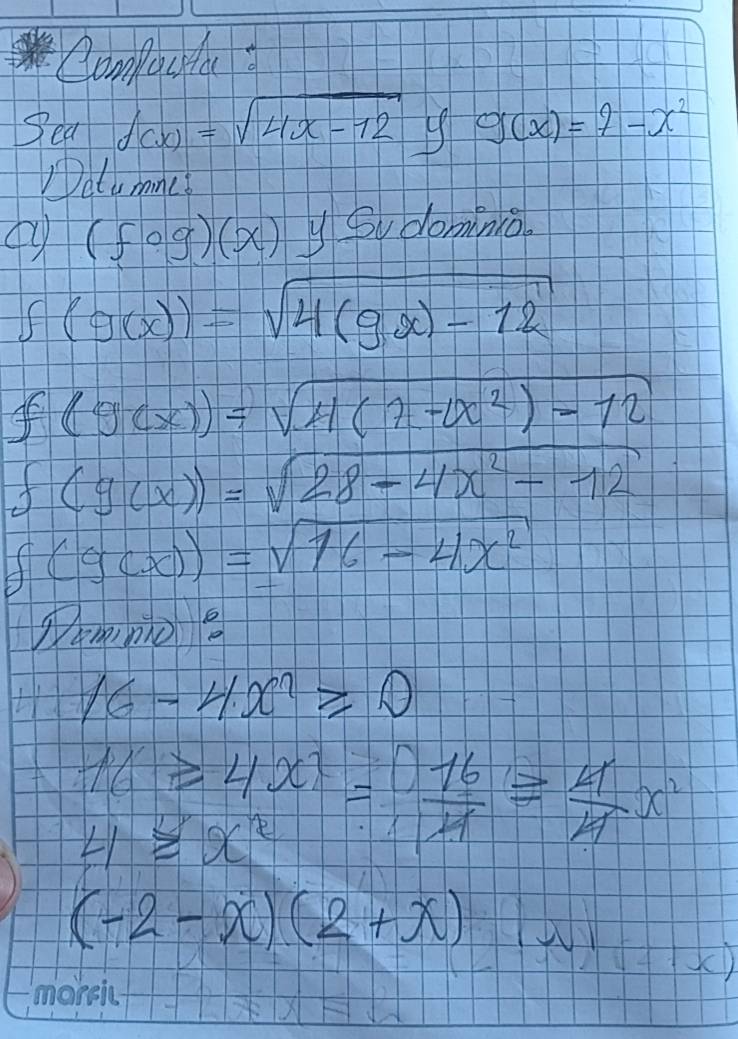 Compuesta:
Sea f(x) = √4x-12 y g(x) = 7-x²
Determine:
a) (f∘g)(x) y su dominio.
f(g(x)) = √4(gx) - 12
f(g(x)) = √4(7-1x²) - 12
f(g(x)) = √28 - 4x² - 12
f(g(x)) = √16 - 4x²
Dominio:
16 - 4x² ≥ 0
16 ≥ 4x² = 16/4 ≥ 4/4 x²
4 ≥ x²
(-2-x)(2+x)
marfil